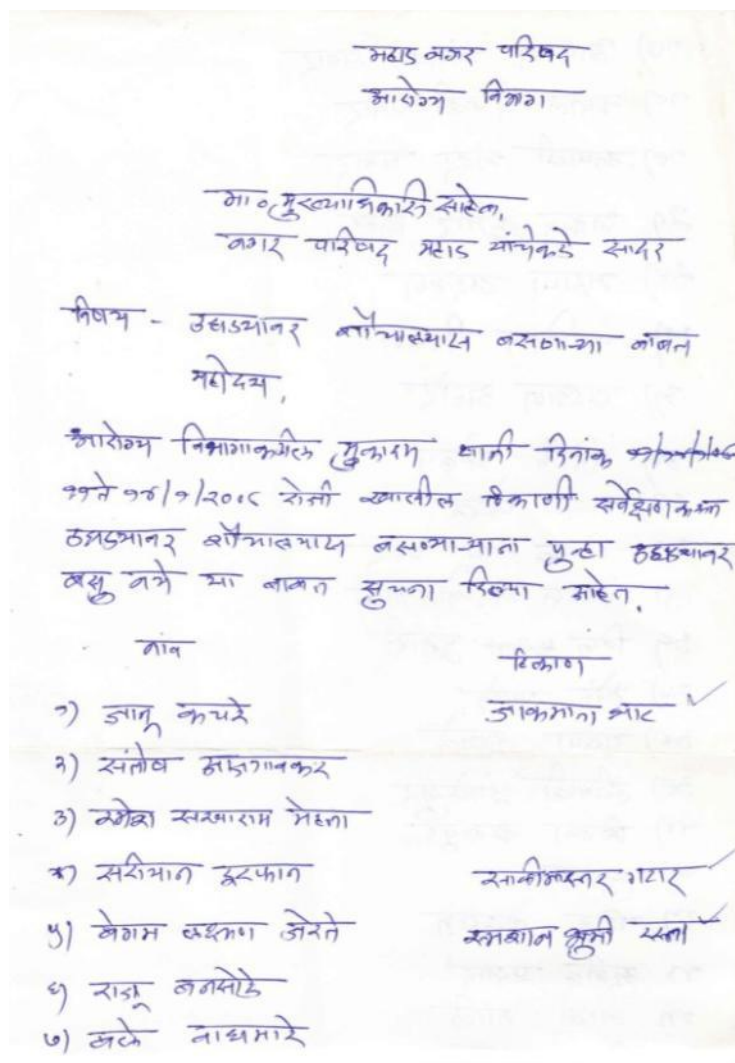 महाड नगर परिषद
आरोग्य विभाग
मा० मुख्याधिकारी साहेब,
नगर परिषद महाड यांचेकडे सादर
विषय - उघड्यावर शौचालयास बसणाऱ्या बाबत
महोदय,
आरोग्य विभागाकडील मुकादम यांनी दिनांक
११ ते १४/१/२००८ रोजी खालील ठिकाणी सर्वेक्षण करून
उघड्यावर शौचालयास बसणाऱ्याना पुन्हा उघड्यावर
बसू नये या बाबत सुचना दिल्या आहेत.
नांव ठिकाण
१) ज्ञानू कचरे
२) संतोष
३) रमेश सखाराम मेहता
४) इरफान गटार
५) लक्ष्मण स्मशान भूमी रस्ता
६) राजू बनसोडे
७) वाघमारे